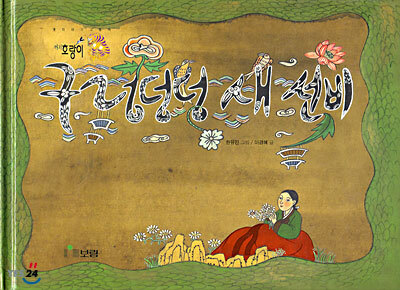 호랑이
구렁덩덩 새 선비
한유민 그림 / 이경혜 글
보림
24